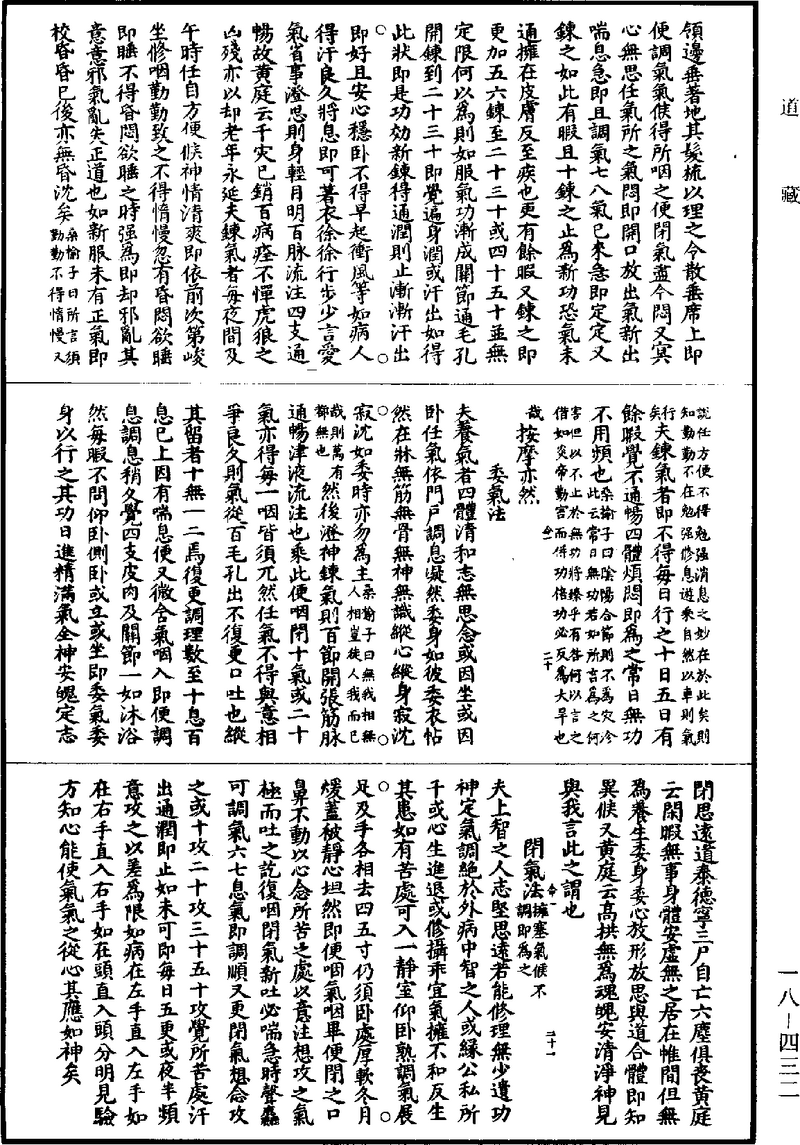 道藏
領邊垂著地其髮梳以理之令散垂席上即
便調氣氣候得所咽之便閉氣盡令悶又冥
心無思任氣所之氣悶即開口放出氣新出
喘息急即且調氣七八氣已來急即定定又
鍊之如此有暇且十鍊之止為新功恐氣未
通擁在皮膚反至疾也更有餘暇又鍊之即
更加五六鍊至二十三十或四十五十並無
定限何以為則如服氣功漸成關節通毛孔
開鍊到二十三十即覺遍身潤或汗出如得
此狀即是功効新鍊得通潤則止漸漸汗出
即好且安心穩卧不得早起衝風等如病人
得汗良久將息即可著衣徐徐行步少言愛
氣省事澄思則身輕目明百脉流注四支通
暢故黄庭云千灾已銷百病痊不憚虎狼之
凶殘亦以却老年永延夫鍊氣者每夜間及
午時任自方便候神情清爽即依前次第峻
坐修咽勤勤致之不得惰慢忽有昏悶欲睡
即睡不得昏悶欲睡之時强為即却邪亂其
意意邪氣亂失正道也如新服未有正氣即
校昏昏已後亦無昏沈矣桑榆子曰所言須勤勤不得惰慢又
說任方便不得勉强消息之妙在於此矣則知勤勤不在勉强修息遊乘自然以車則氣
行矣夫鍊氣者即不得每日行之十日五日有
餘暇覺不通暢四體煩悶即為之常日無功
不用頻也桑榆子曰陰陽合節則不為灾今此云常日無功若如所言為之何
害但以不止於無功將臻乎有咎何以言之借如炎帝勤言而併功倍功必反為大旱也
哉按摩亦然
二十
委氣法
夫養氣者四體清和志無思念或因坐或因
卧任氣依門戶調息凝然委身如彼委衣帖
然在牀無筋無骨無神無識縱心縱身寂沈
寂沈如委時亦勿為主桑榆子曰無我相無人相豈徒人我而已
哉則萬有都無也然後澄神鍊氣則百節開張筋脉
通暢津液流注也乘此便咽閉十氣或二十
氣亦得每一咽皆須兀然任氣不得與意相
爭良久則氣從百毛孔出不復更口吐也縱
其留者十無一二焉復更調理數至十息百
息已上因有喘息便又微含氣咽入即便調
息調息稍久覺四支皮肉及關節一如沐浴
然每暇不問仰卧側卧或立或坐即委氣委
身以行之其功日進精滿氣全神安魄定志
閉思遠道泰德寧三尸自亡六塵俱喪黄庭
云閑暇無事身體安虛無之居在帷間但無
為養生委身委心放形放思與道合體即知
異候又黄庭云高拱無為魂魄安清淨神見
與我言此之謂也
二十一
閉氣法擁塞氣候不調即為之
夫上智之人志堅思遠若能修理無少遺功
神定氣調絕於外病中智之人或緣公私所
干或心生進退或修攝乖宜氣擁不和反生
其患如有苦處可入一靜室仰卧熟調氣展
足及手各相去四五寸仍須卧處厚軟冬月
煖蓋被靜心坦然即便咽氣咽畢便閉之口
鼻不動以心念所苦之處以意注想攻之氣
極而吐之訖復咽閉氣新吐必喘急時聲麤
可調氣六七息氣即調順又更閉氣想念攻
之或十攻二十攻三十五十攻覺所苦處汗
出通潤即止如未可即每日五更或夜半頻
意攻之以差為限如病在左手直入左手如
在右手直入右手如在頭直入頭分明見驗
方知心能使氣氣之從心其應如神矣
一八—四三二